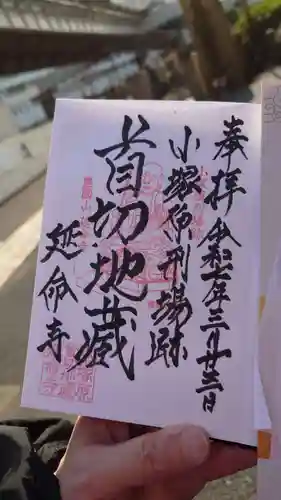 奉拝 令和七年二月廿三日
小塚原刑場跡
首切地蔵
延命寺